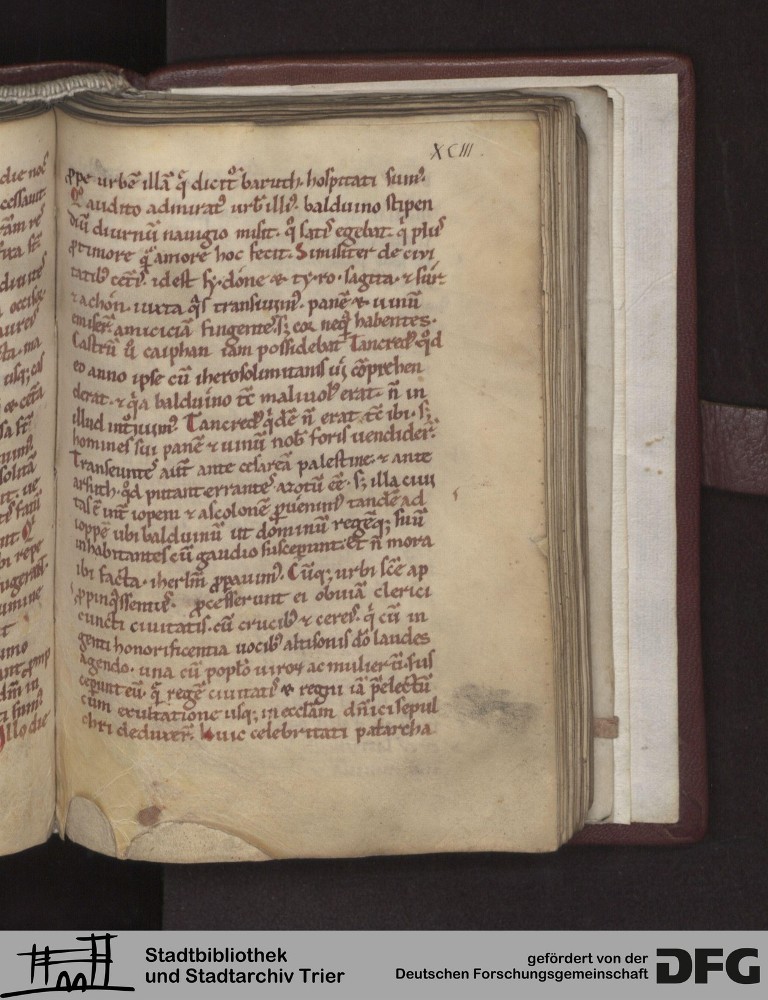 XCIII.
ꝓpe urbē illā q̄ dicit͛ baruth. hospitati sum᷒.
Qͦ audito admirat᷒ urb̄ illi᷒. balduino stipen
diū diurnū nauigio misit. qͦ satis egebat. q̇ plus
ꝓ timore quā amore hoc fecit. Similiter de ciui
tatib᷒ cet̄is. id est sydone & tyro. sagitta. & sur
& achon. iuxta q̄s transiuim᷒. panē & uinū
amiciciā fingentes. s; cor neq; habentes.
Castrū u̇ caiphan iam possidebat Tancred᷒. qd̄
eo anno ipse cū iherosolimitanis ui cōprehen
derat. & qa balduino tc̄ maliuol᷒ erat. n̄ in
illud int̄uim᷒. Tancred᷒ qͥdē n̄ erat tc̄ ibi. s;
homines sui panē & uinū nob̄ foris uendider̄.
Transeuntes aut̄ ante cesareā palestine. & ante
arsuth. qd̄ putant errantes azotū eē. s; illa ciui
tas ē int̄ iopem & ascolonē. ꝑuenim᷒ tandē ad
ioppē ubi balduinū ut dominū regēq; suū
inhabitantes cū gaudio susceperunt. Et n̄ mora
ibi facta. iherlm̄ ꝓpauim᷒. Cūq; urbi sc̄e ap
ꝓpinq̄ssem᷒. ꝓcesserunt ei obuiā clerici
cuncti ciuitatis. cū crucib᷒ & cereis. q̇ cū in
genti honorificentia uocib᷒ altisonis dō laudes
agendo. una cū pop̄lo uiroꝝ ac mulierū. sus
ceperunt eū. qͣ regē ciuitatis & regni iā p̄electū
cum exultatione usq; in ecclam̄ dn̄ici sepul
chri deduxer̄. Huic celebritati patarcha
Stadtbibliothek
und Stadtarchiv Trier
gefördert von der
Deutschen Forschungsgemeinschaft
DFG